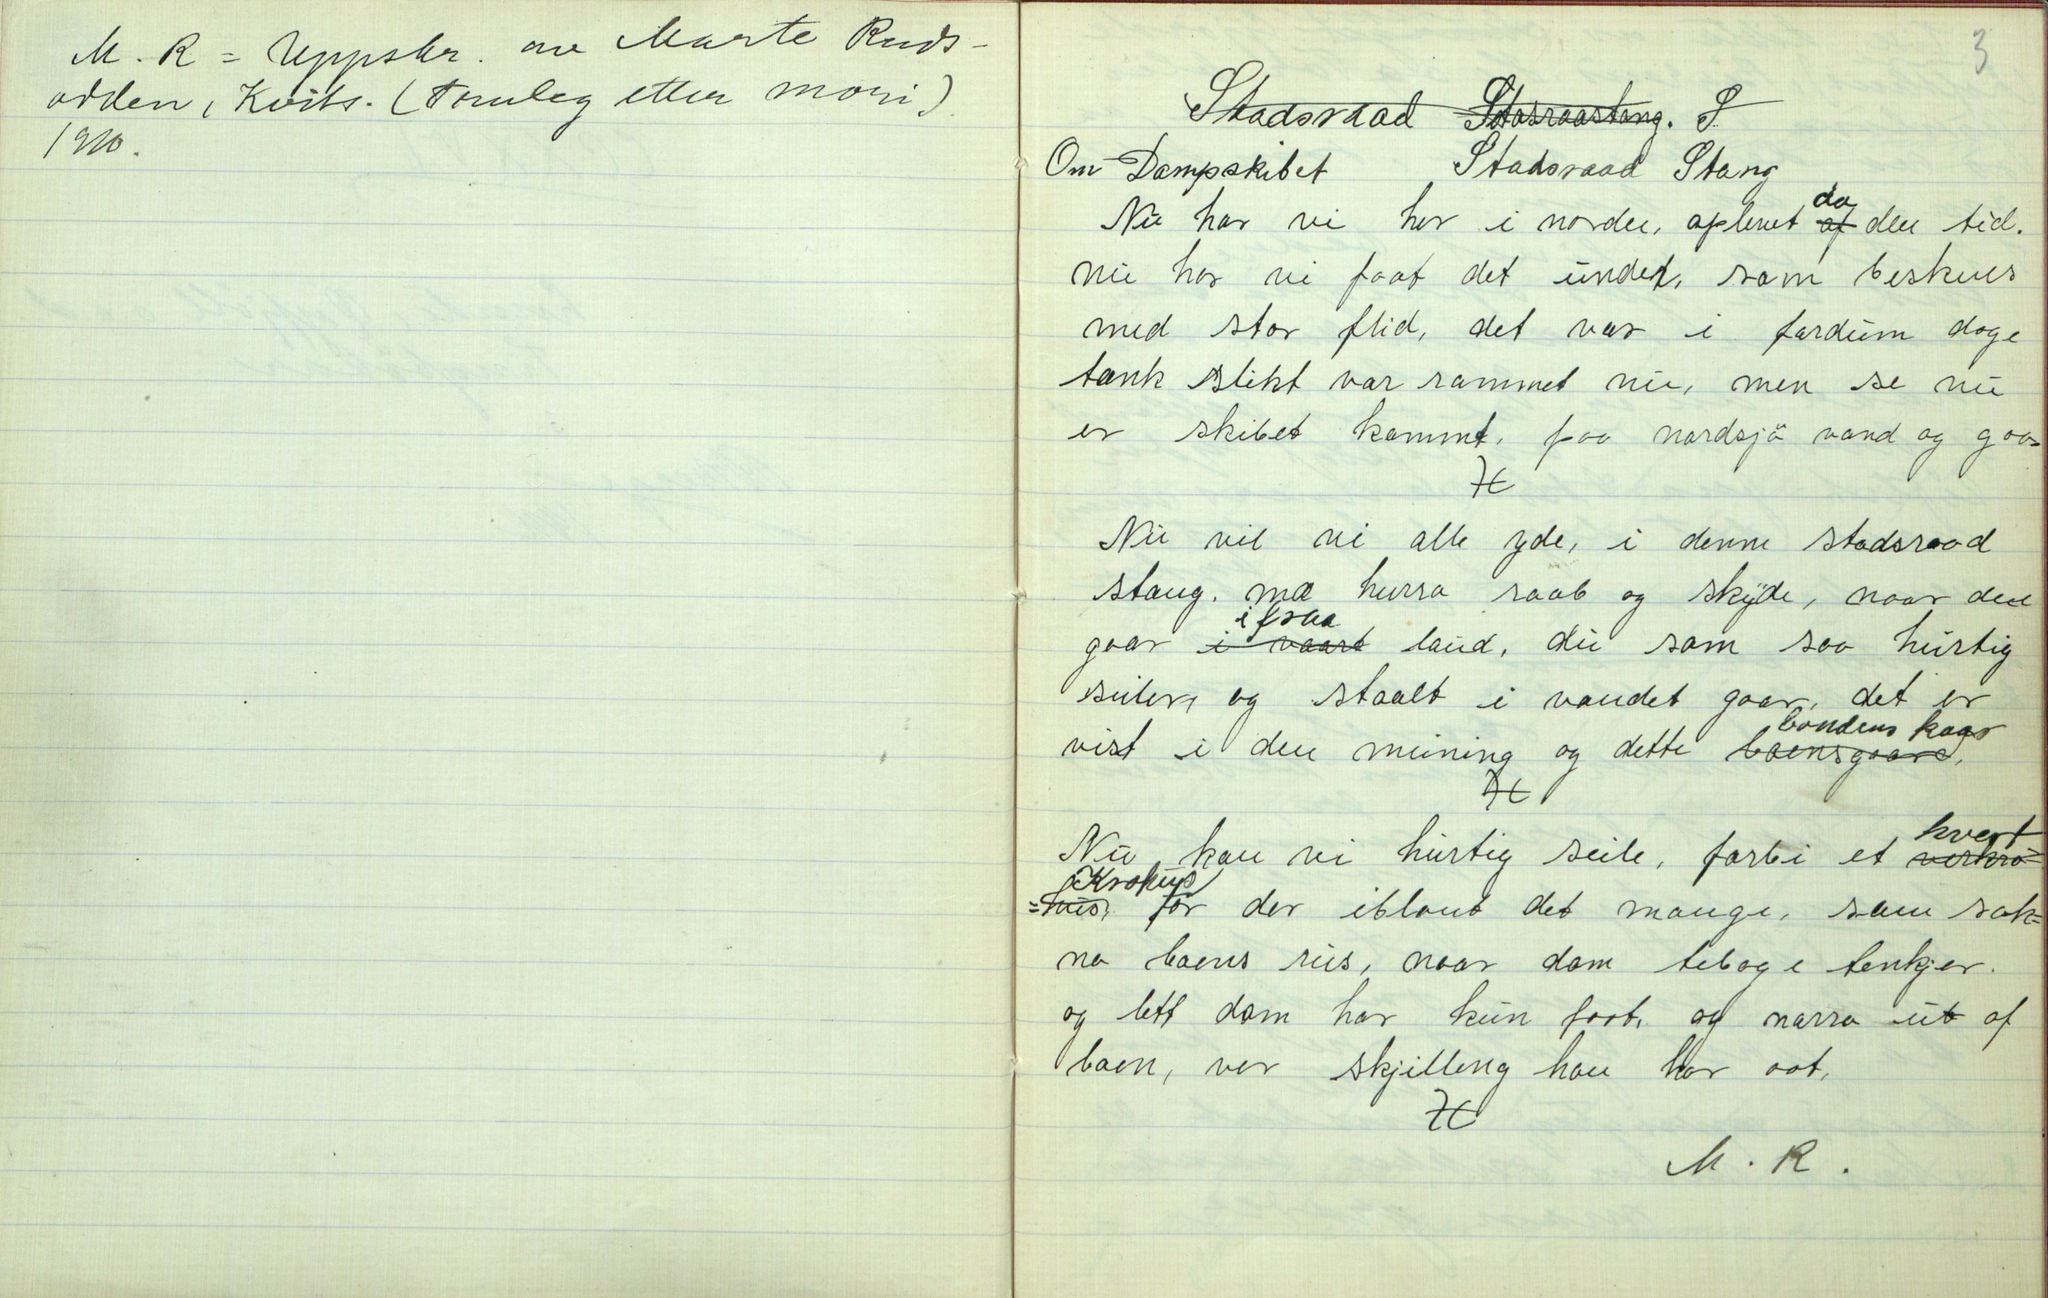 M. R = Uppskr. av Marte Ruds-
odden, Kvits. (Truleg etter mori)
1910.
3
Stadsraad Stasraastang. S
Om Dampskibet Stadsraad Stang
da
Nu har vi her i norden, oplevet af den tid.
nu har vi faat det undet, som beskues
med stor flid, det var i fardum dage
tænk slikt var rammet nu, men se nu
er skibet kommet, paa nordsjö vand og gaar
Nu vil vi alle yde, i denne stadsraad
stang. ma hurra raab og skyde, naar den
i fraa
gaar i vaart land, du som saa hurtig
seiler, og staalt i vandet gaar, det er
bondens kaar
vist i den meining og dette baensgaard,
kvert
Nu kan vi hurtig seile, forbi et verkro=
Krohus
=hus, for der iblant det mange, som sak=
na baens rus, naar dom tebage tenkjer.
og lett dom har kun faat, og narra ut af
baen, ver skjilleng han har aat,
M. R.